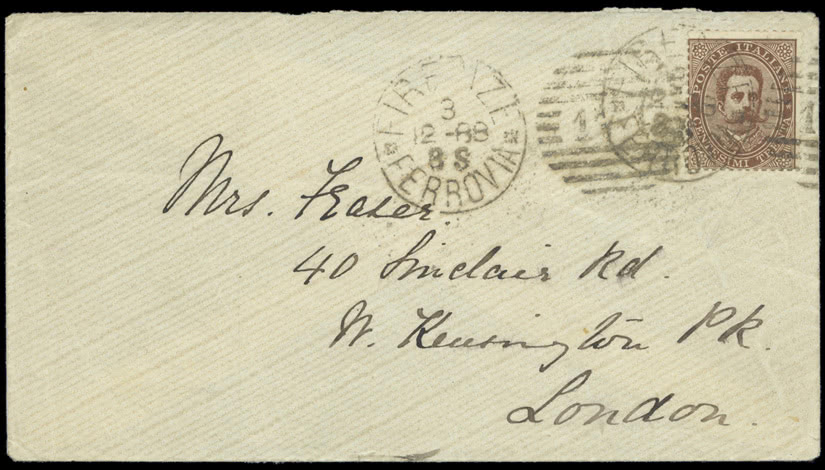 FIRENZE
3
12-88
8 S
FERROVIA
1
POSTE ITALIANE
CENTESIMI TRENTA
Mrs. Fraser.
40 Sinclair Rd.
W. Kensington Pk.
London.